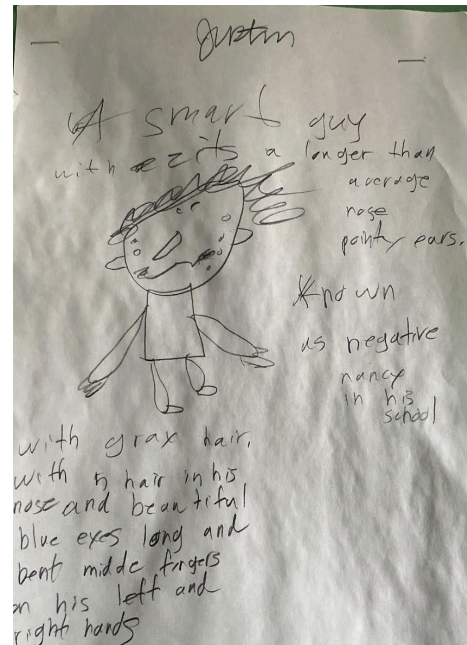 Justin
A smart guy
with zits a longer than
average
nose
pointy ears.
Known
as negative
nancy
in his
school
with gray hair,
with 5 hair in his
nose and beautiful
blue eyes long and
bent midde fingers
on his left and
right hands